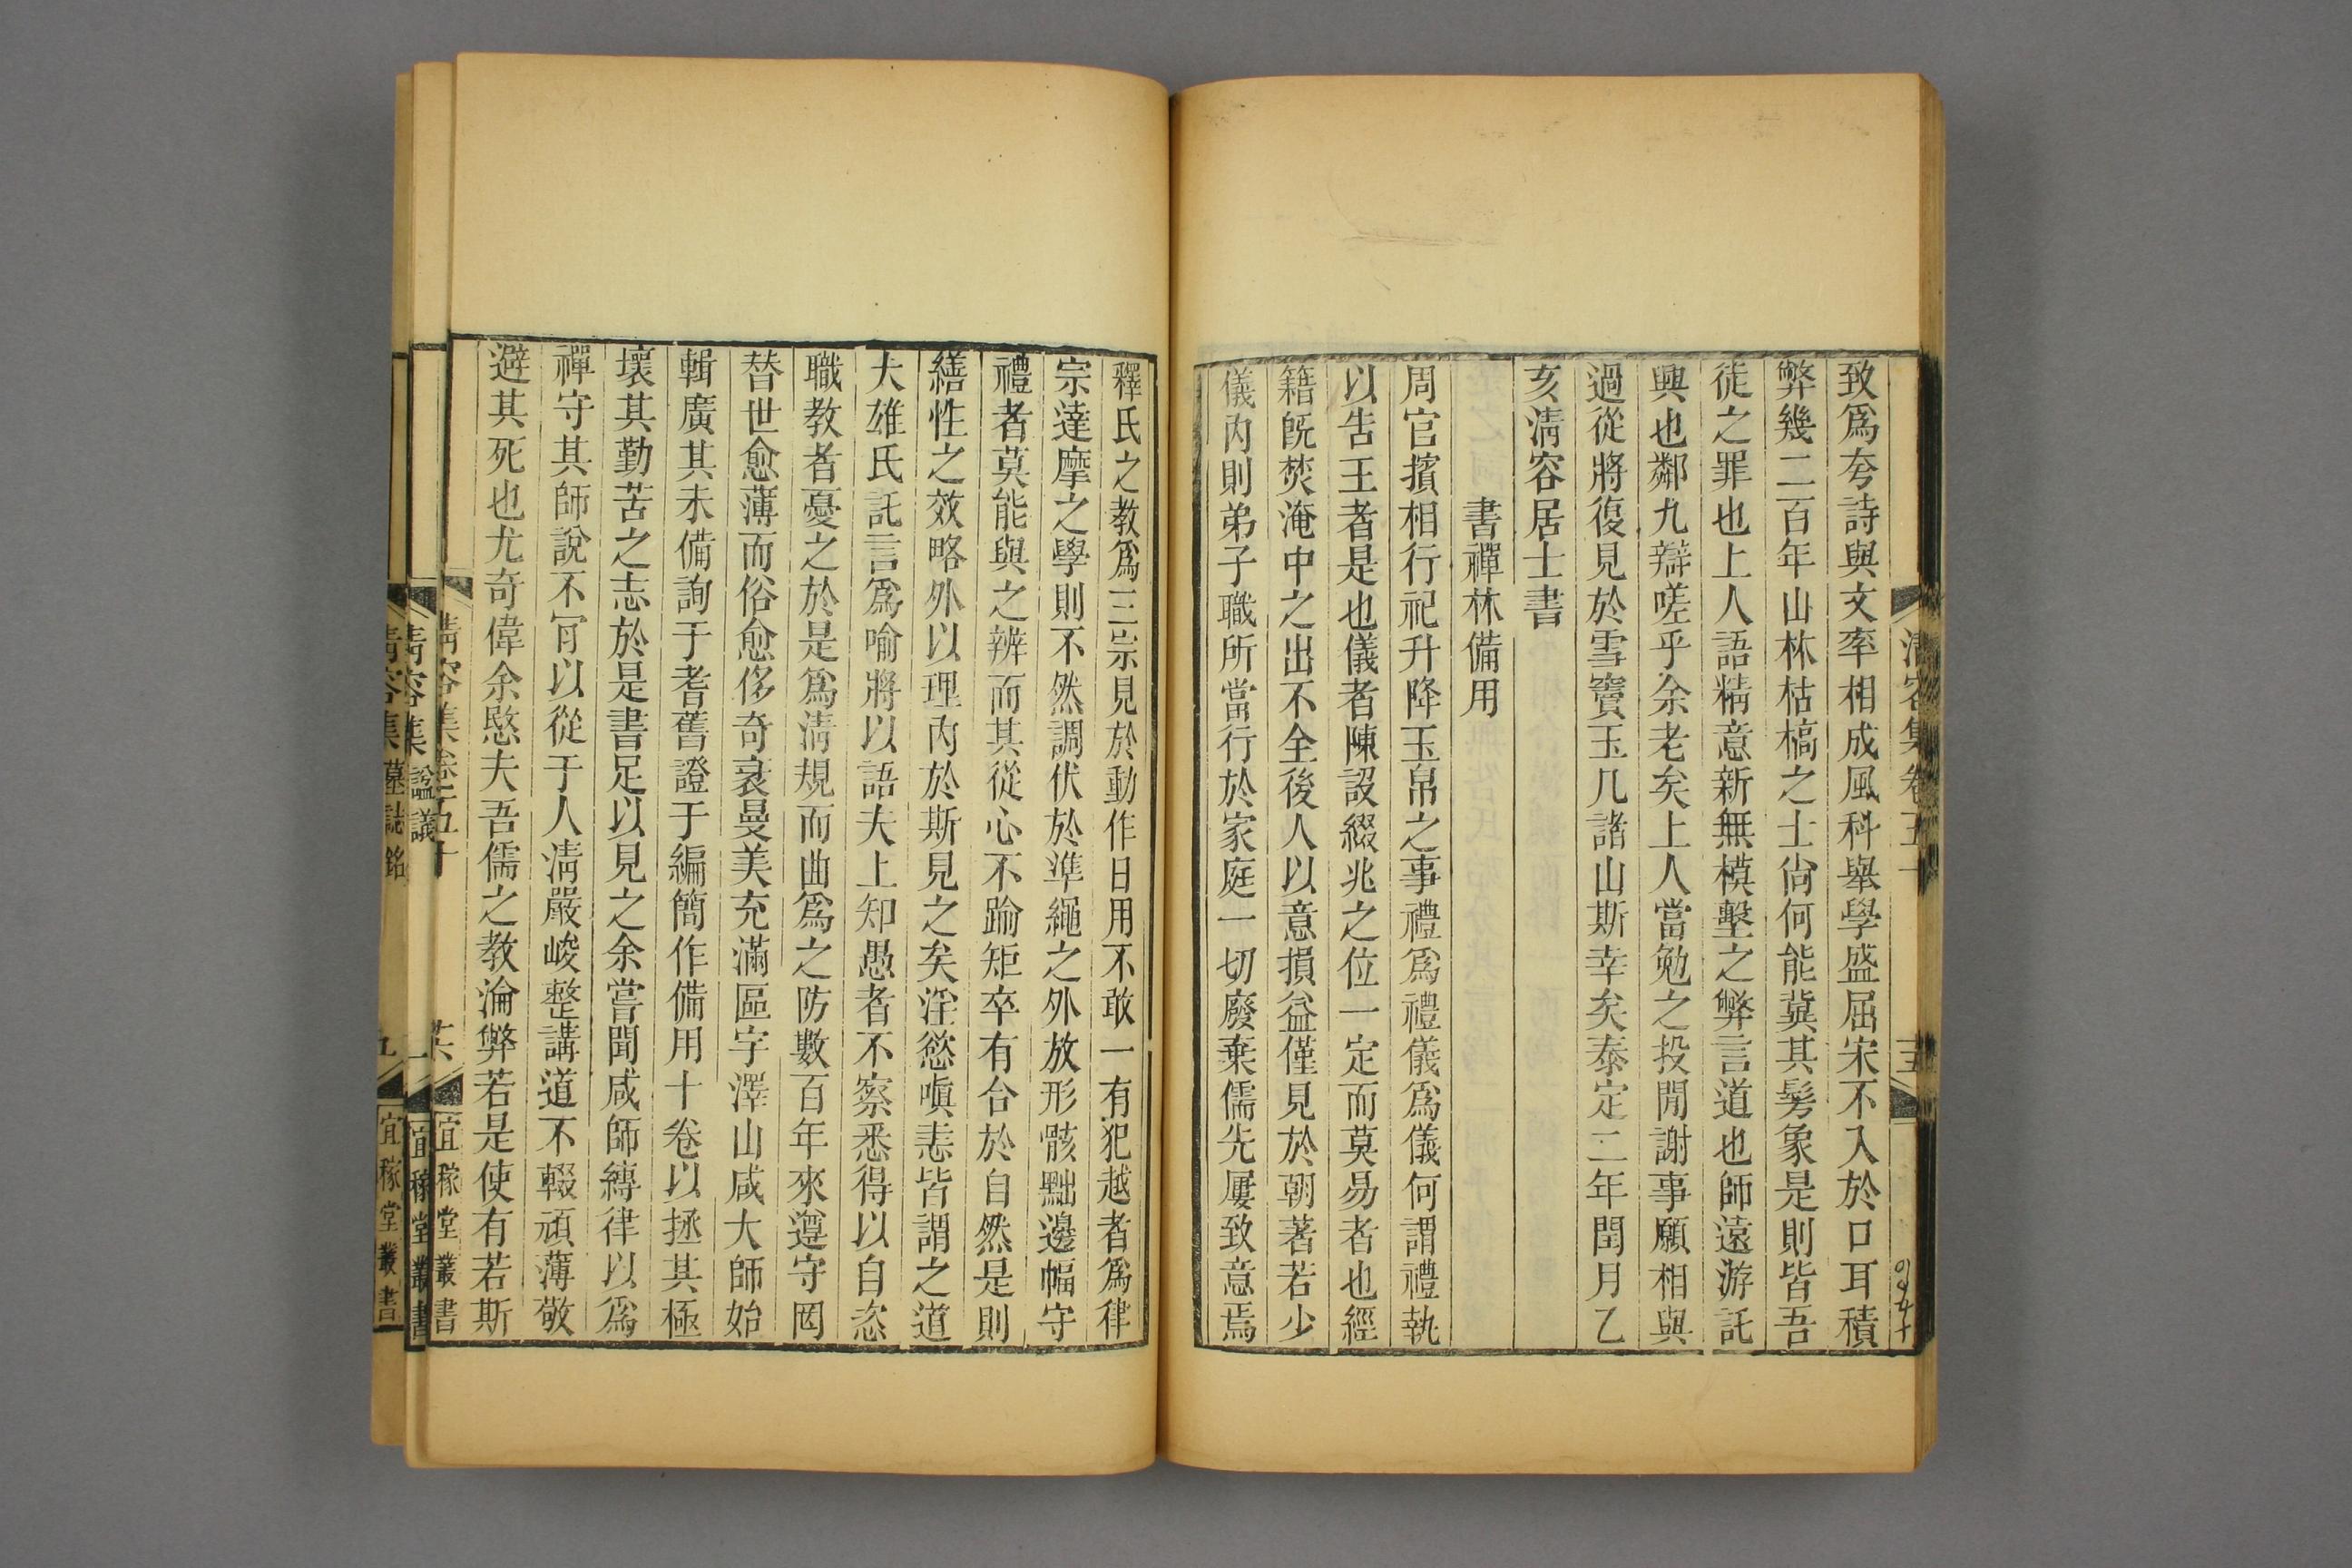 致爲夸詩與文率相成風科舉學盛屈宋不入於口耳積
弊幾二百年山林枯槁之士尙何能冀其髣象是則皆吾
徒之罪也上人語精意新無模墼之弊言道也師遠游託
興也鄰九辯嗟乎余老矣上人當勉之投閒謝事願相與
過從將復見於雪竇玉几諸山斯幸矣泰定二年閏月乙
亥清容居士書
書禪林備用
周官擯相行祀升降玉帛之事禮爲禮儀爲儀何謂禮執
以告王者是也儀者陳設綴兆之位一定而莫易者也經
籍旣焚淹中之出不全後人以意損益僅見於朝著若少
儀內則弟子職所當行於家庭一切廢棄儒先屢致意焉
釋氏之教爲三宗見於動作日用不敢一有犯越者爲律
宗達摩之學則不然調伏於準繩之外放形骸黜邊幅守
禮者莫能與之辨而其從心不踰矩卒有合於自然是則
繕性之效略外以理內於斯見之矣淫慾嗔恚皆謂之道
大雄氏託言爲喻將以語夫上知愚者不察悉得以自恣
職教者憂之於是爲清規而曲爲之防數百年來遵守罔
替世愈薄而俗愈侈奇衺曼美充滿區宇澤山咸大師始
輯廣其未備詢于耆舊證于編簡作備用十卷以拯其極
壞其勤苦之志於是書足以見之余嘗聞咸師縛律以爲
禪守其師說不肎以從于人清嚴峻整講道不輟頑薄敬
避其死也尤奇偉余愍夫吾儒之教淪弊若是使有若斯
清容集卷五十
宜稼堂叢書
清容集 謚議
一
宜稼堂叢書
清容集 墓誌銘
九
宜稼堂叢書